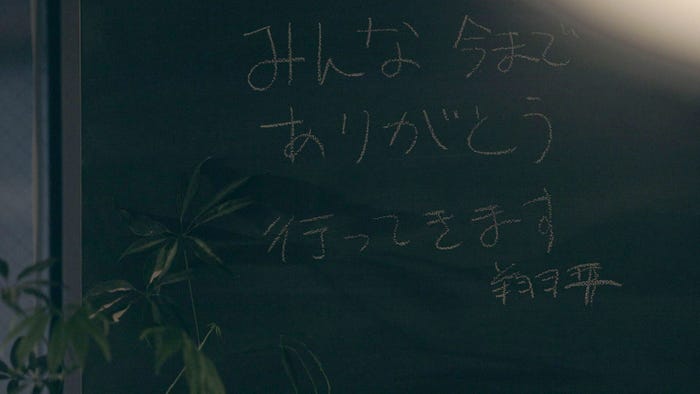 みんな 今まで
ありがとう
行ってきます
翔平